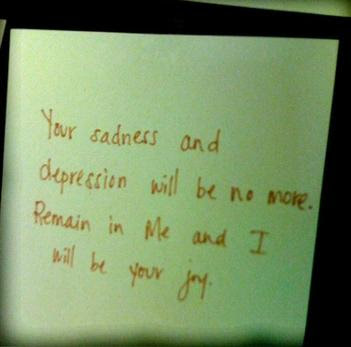 Your sadness and
depression will be no more.
Remain in Me and I
will be your joy.